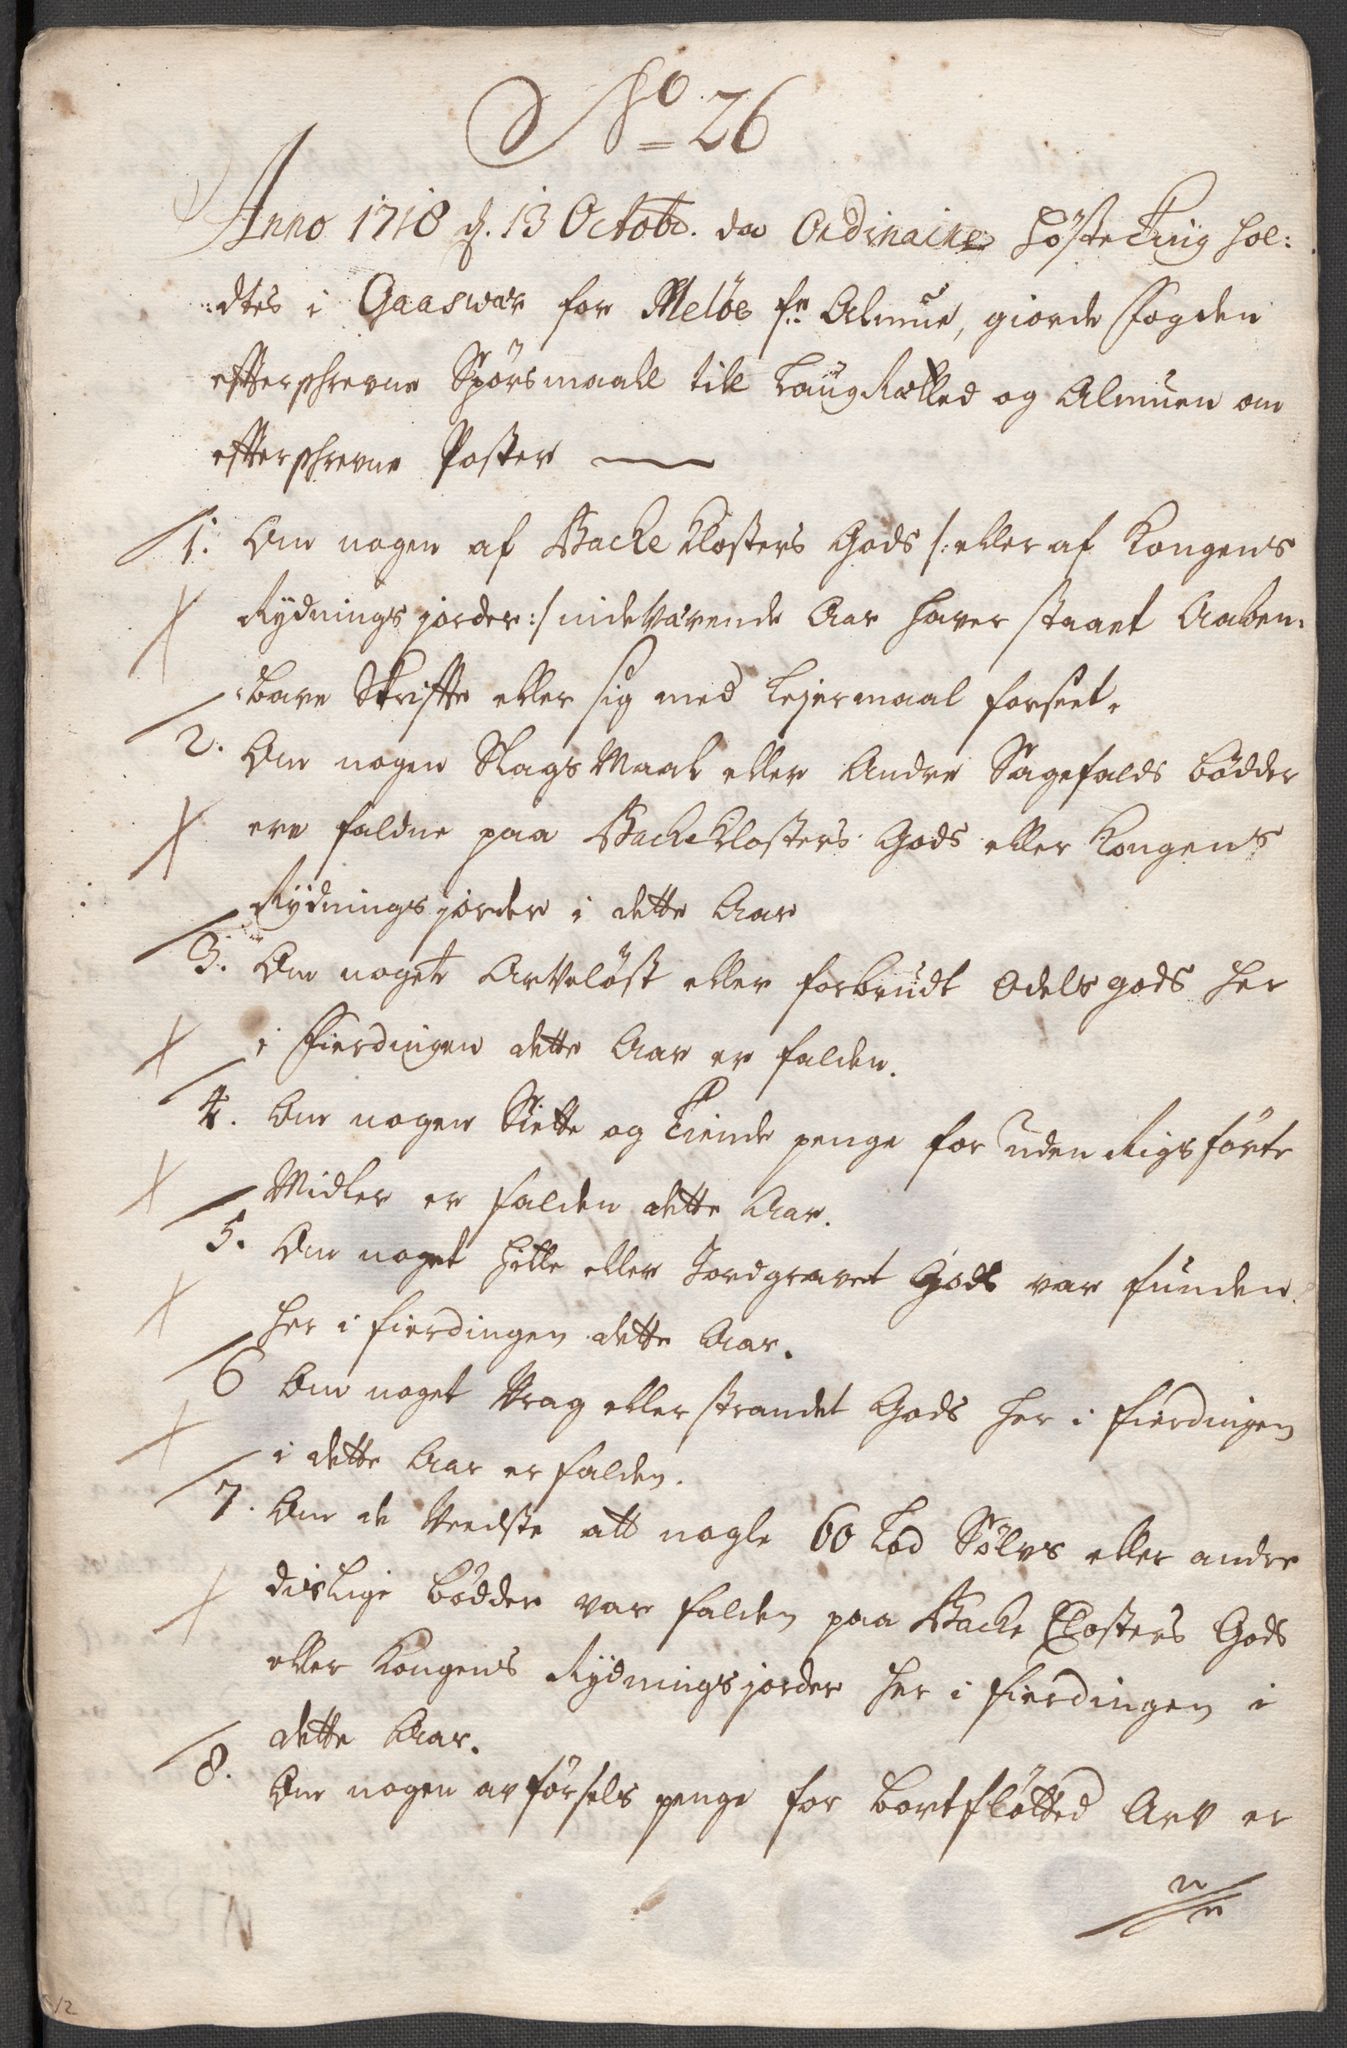 No 26
Anno 1718 d. 13 Octobr. da Ordinaire Høste Ting hol:
:dtes i Gaaswær for Meløe fr. Almue, giorde Fogden
efterschrevne Spørsmaall till LaugRætted og Almuen om
efterschrevne Poster
1. Om nogen af Backe Closters Gods /: eller af Kongens
Rydnings jorder :/ indeværende Aar haver staaet Aaben:
:bare Skrifte eller sig med Lejermaal forseet.
2. Om nogen Slags Maal eller Andre Sagefalds bødder
ere faldne paa Backe Closters Gods eller Kongens
Rydnings jorder i dette Aar
3. Om noget Arveløst eller forbrudt Odels gods her
i Fierdingen dette Aar er falden.
4. Om nogen Siette og Tiende penge for uden Rigs førte
Midler er falden dette Aar.
5. Om noget Hitte eller Jordgravet Gods var funden
her i fierdingen dette Aar.
6 Om noget Vrag eller strandet Gods her i fierdingen
i dette Aar er falden.
7. Om de Veedste att nogle 60 Lod Sølvs eller andre
dislige bødder var falden paa Backe Closters Gods
eller Kongens Rydnings jorder her i fierdingen i
dette Aar.
8. Om nogen av førsels penge for bortfløtted Arv er
12